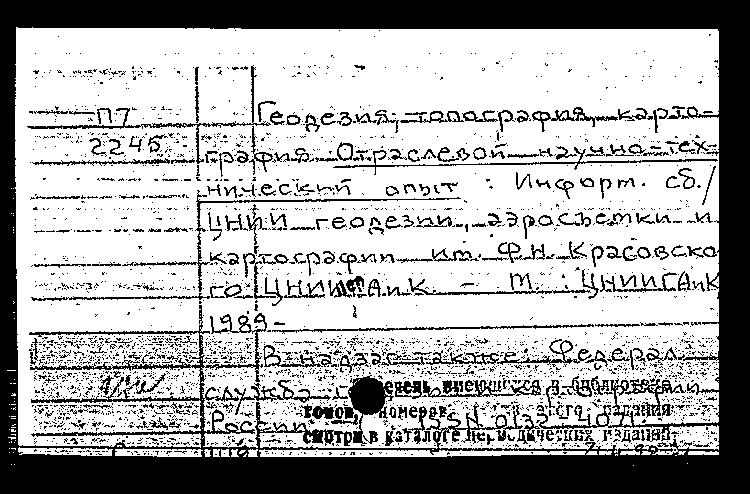 П7
2245
Геодезия, топография, карто-
графия. Отраслевой научно-тех-
нический опыт : Информ. сб./
ЦНИИ геодезии, аэросъемки и
картографии им. Ф.Н. Красовско
го ЦНИИГАиК. - М. : ЦНИИГАиК
1989-
В надзаг. также: Федерал
служба
имеющихся в библиотеке
томов, номеров этого издания
России ISSN 0132-4071
смотри в каталоге периодических изданий